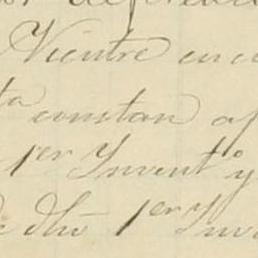 Vientre en c
ta constan af
1er Invent y
e dho 1er Inv